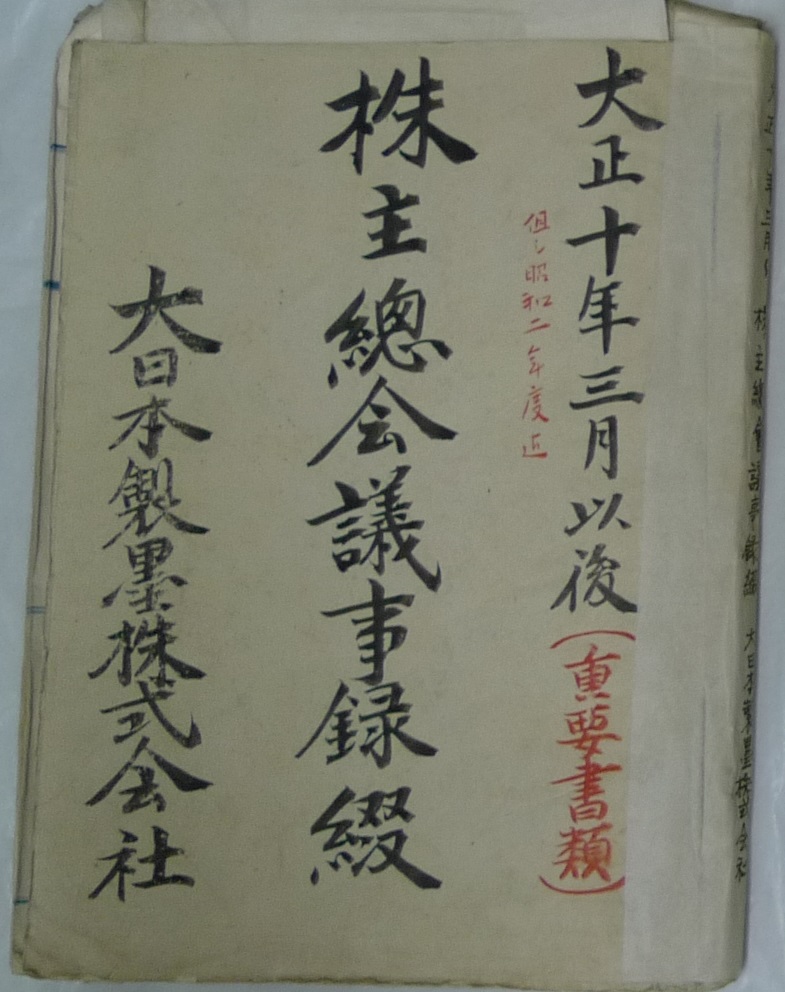 大正十年三月以後(重要書類)
但シ昭和二年度迄
株主總会議事録綴
大日本製墨株式会社
大正十年三月以後 株主總會議事録綴 大日本製墨株式会社